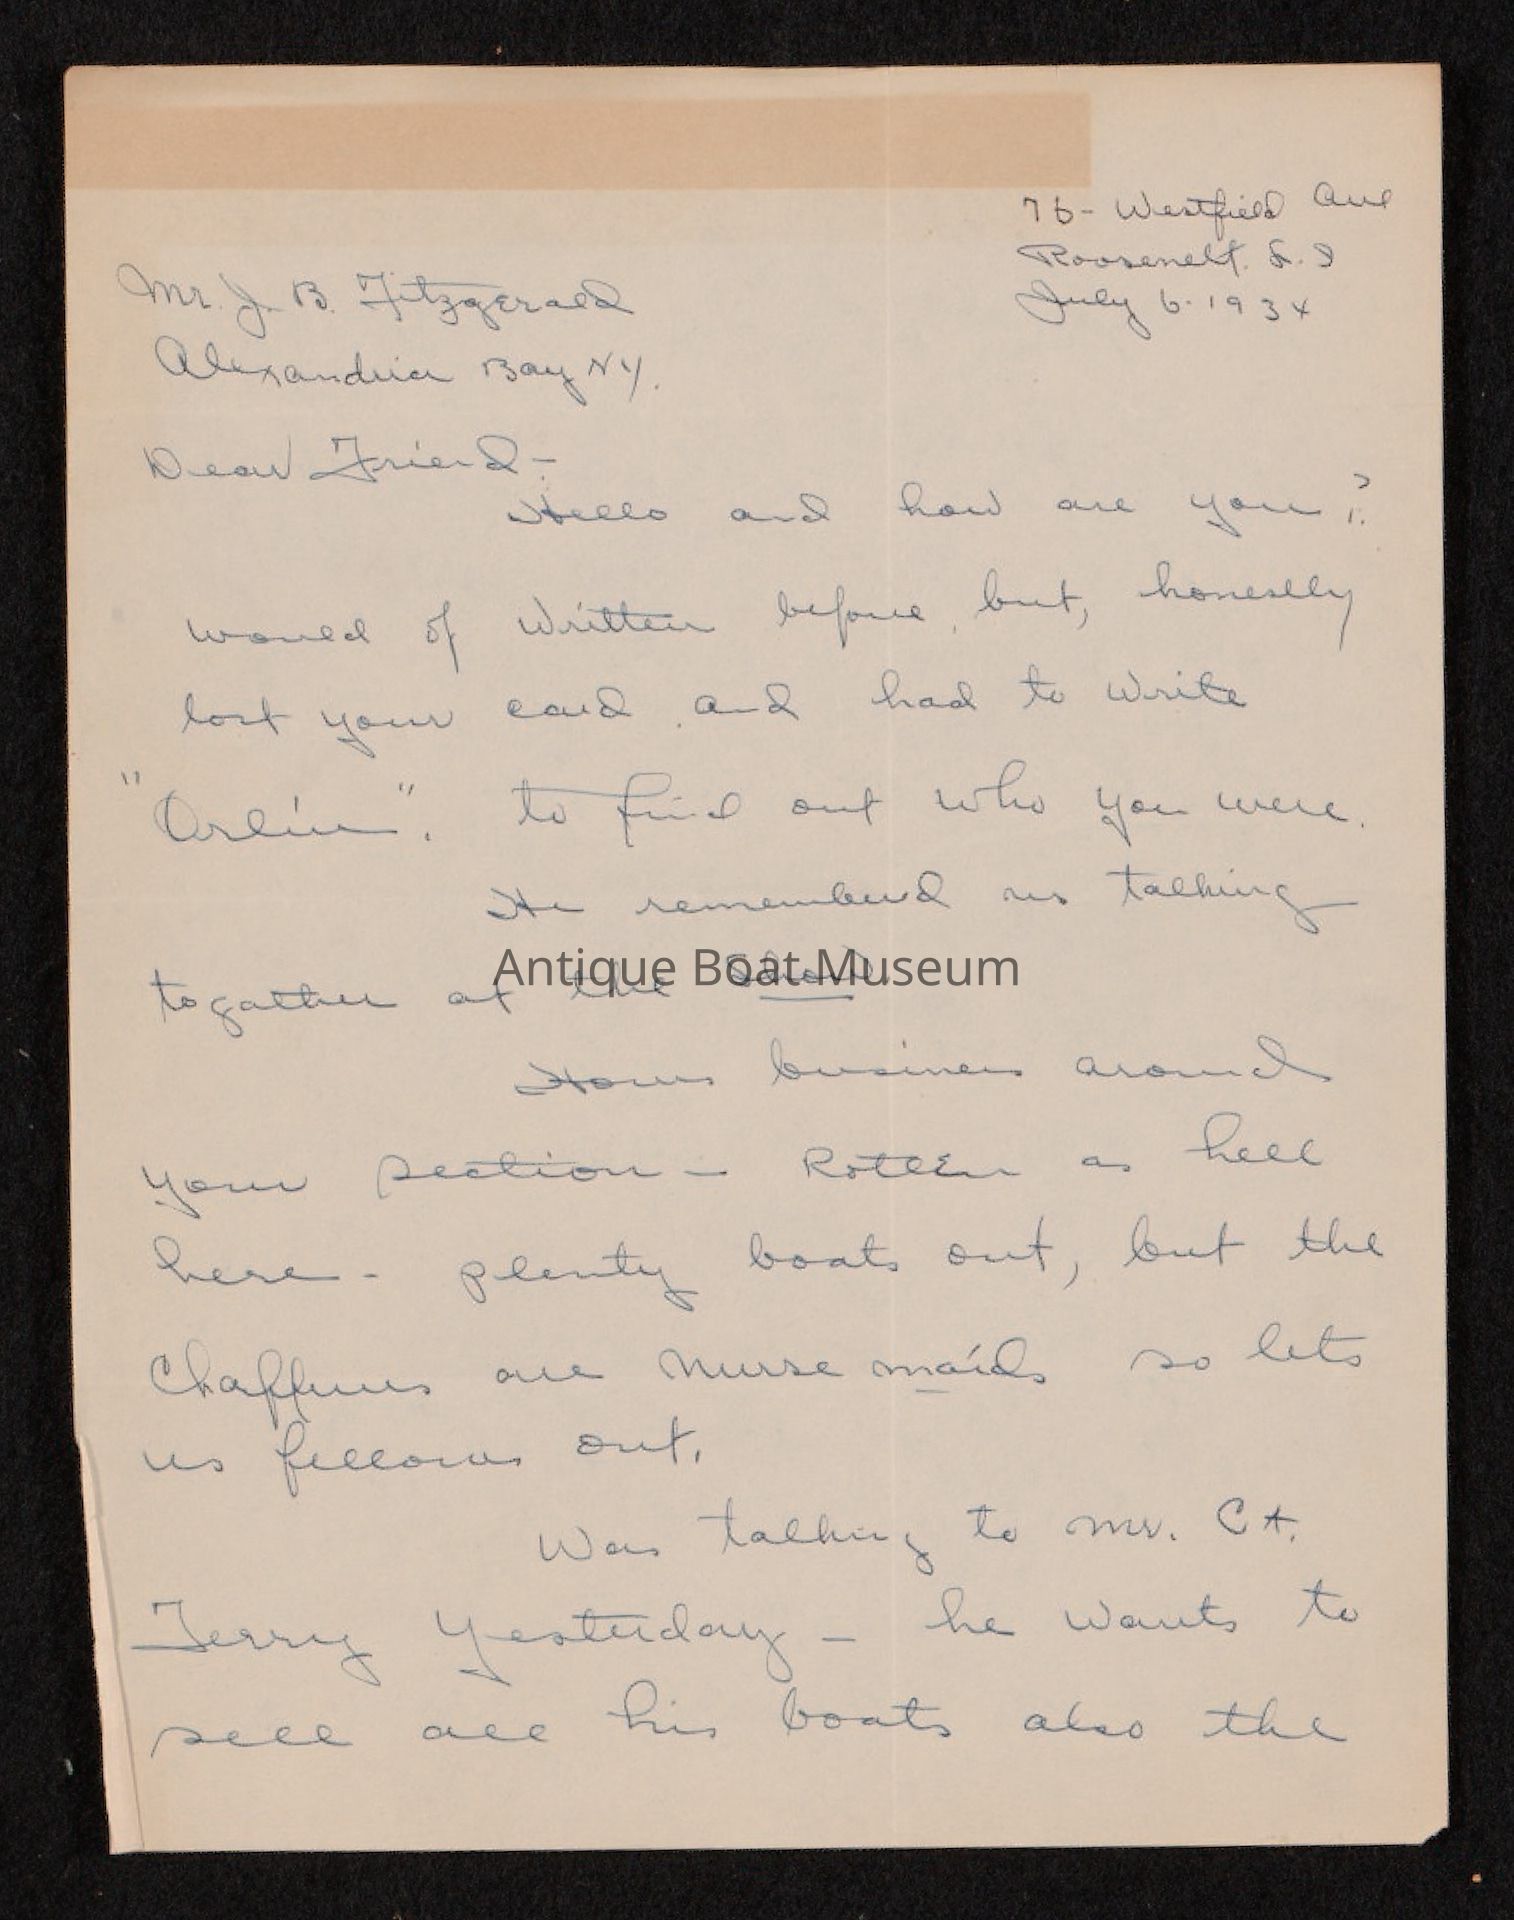 76- Westfield Ave
Roosevelt. L. I
July 6. 1934
Mr. J. B. Fitzgerald
Alexandria Bay N.Y.
Dear Friend-
Hello and how are you?
would of written before, but, honestly
lost your card. and had to write
"Orlin". to find out who you were.
He rememberd us talking
togather at the
Antique Boat Museum
Hows business around
your section - Rotten as hell
here - plenty boats out, but the
Chaffurs are nurse maids so lets
us fellows out.
Was talking to Mr. C A.
Terry yesterday - he wants to
sell all his boats also the